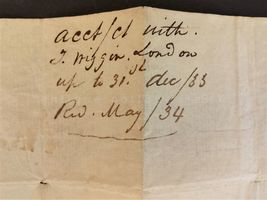 acct/ct with.
T. Wiggin. London
up to 31.st dec/33
Red. May/34